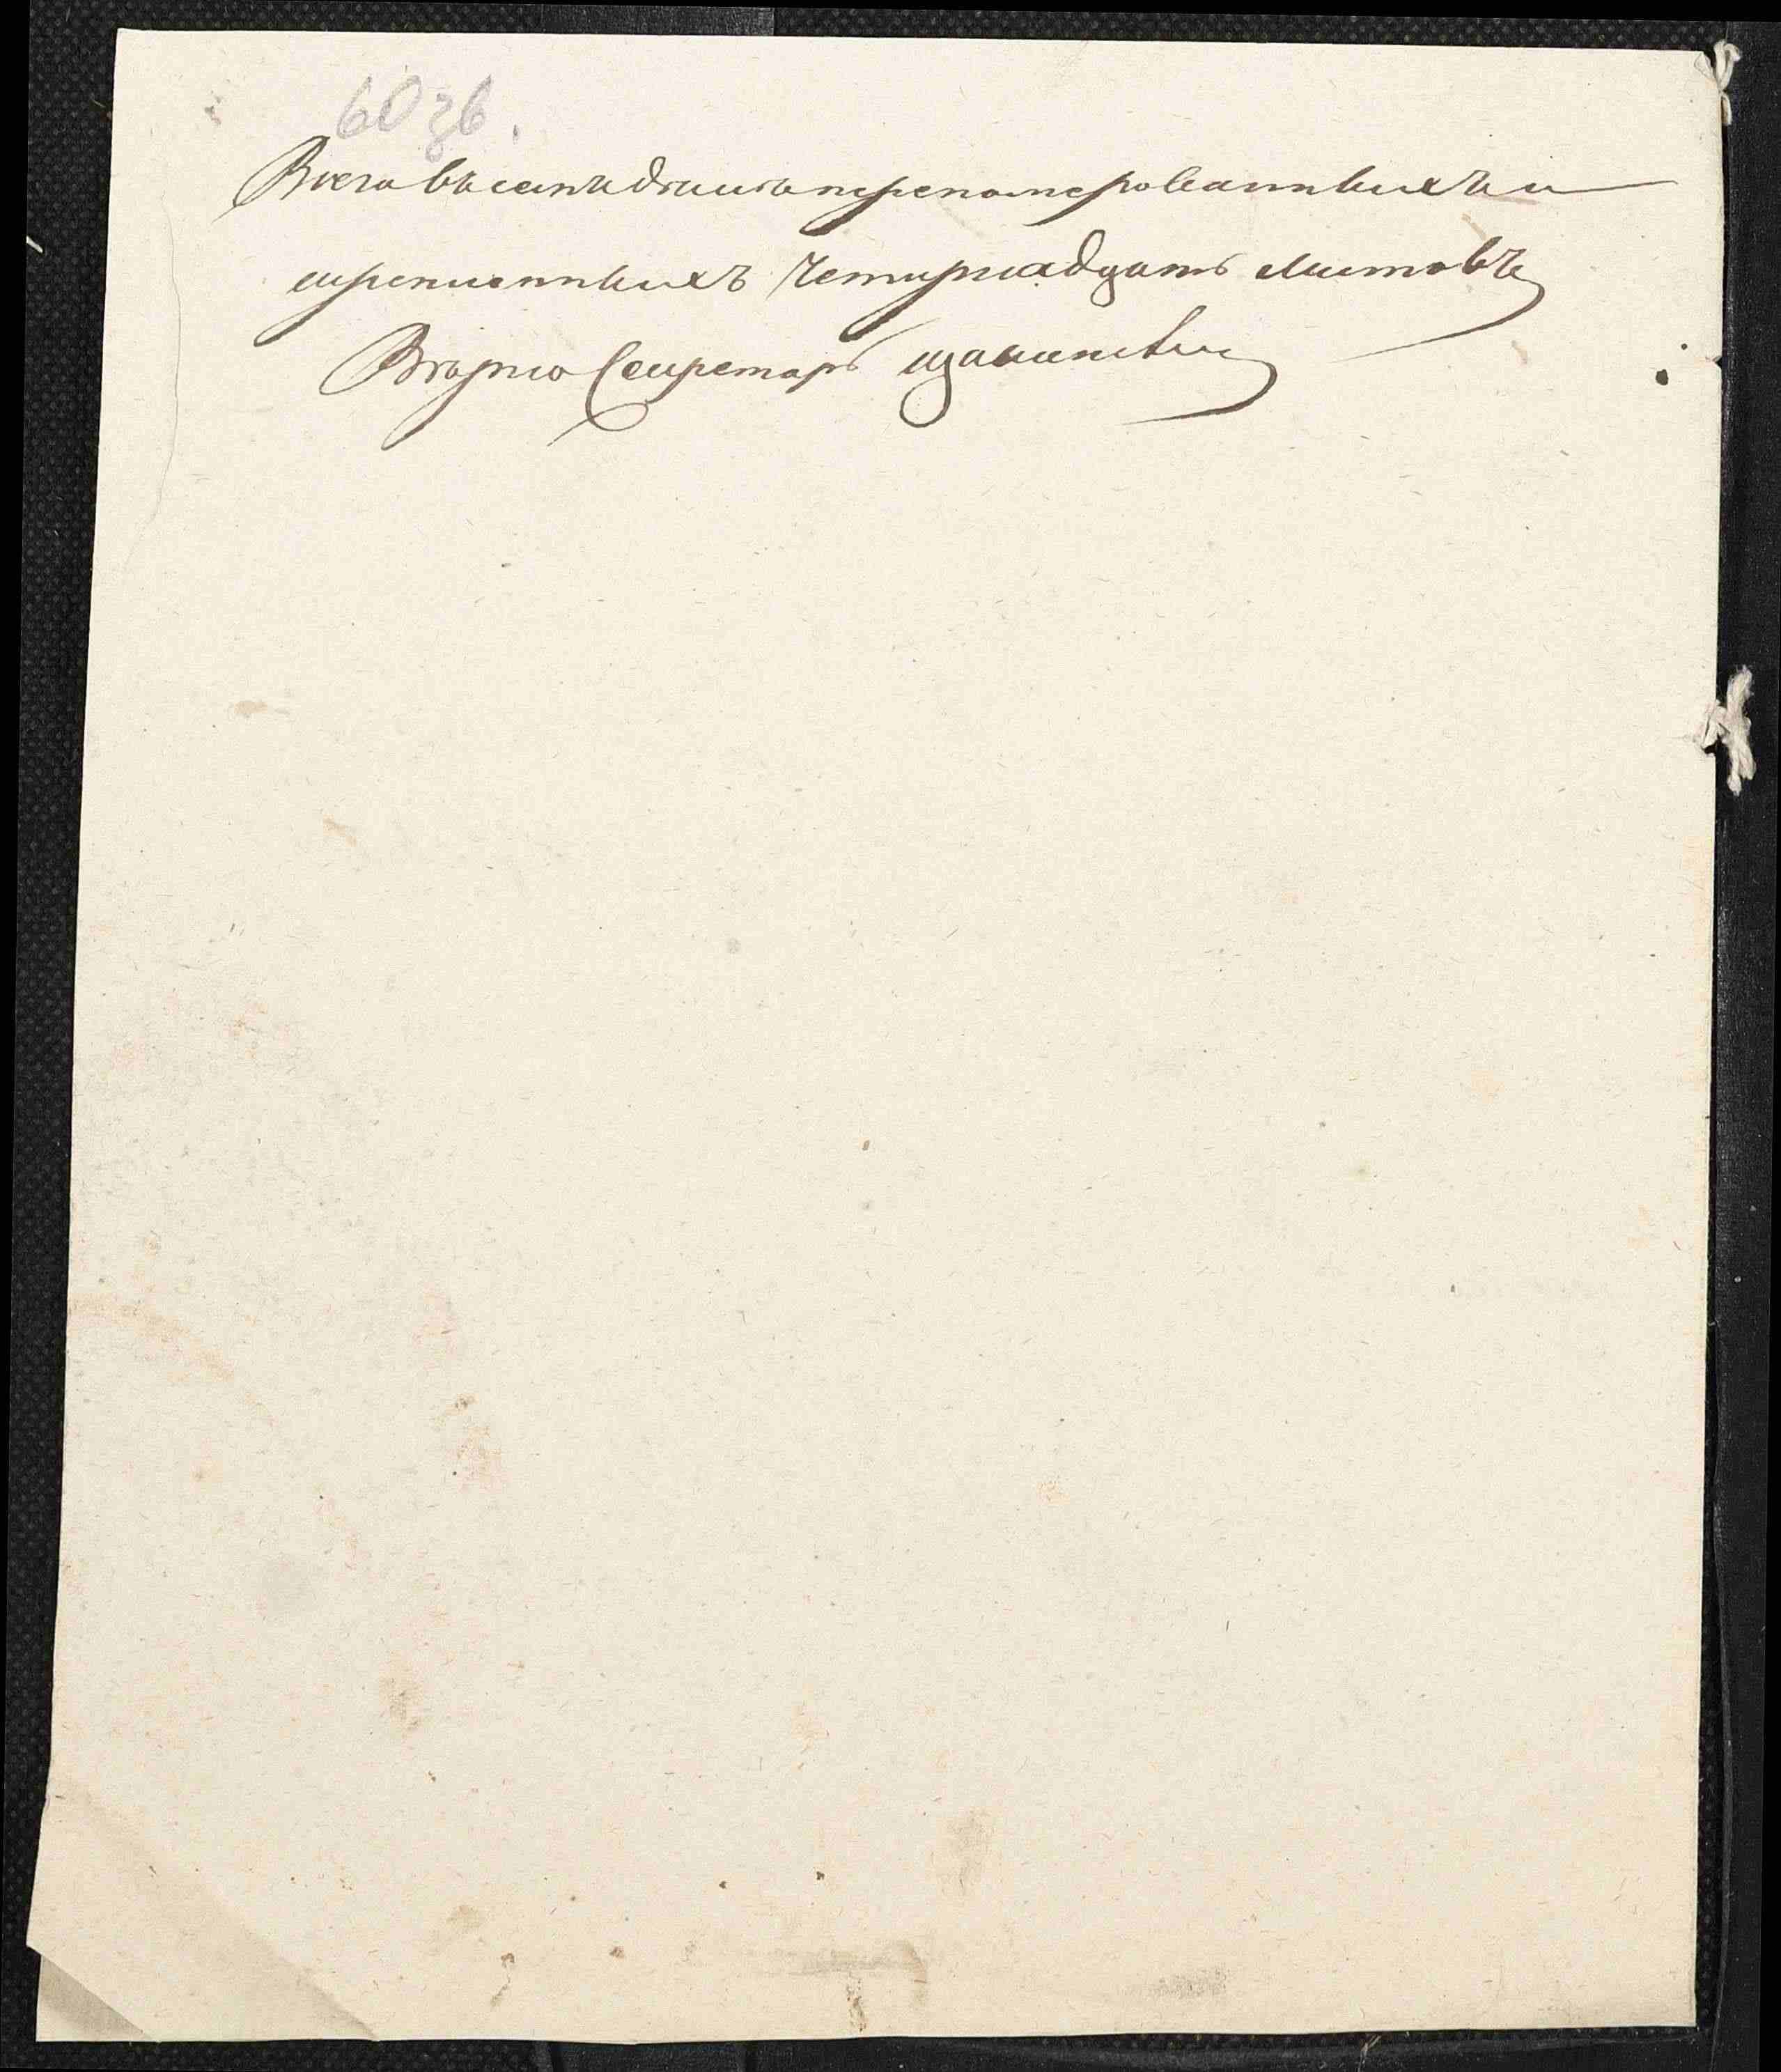 60 зв.
Всего въ семъ деле перепомерованныхъ и
скрепленныхъ Четырнадцать листовъ
Верно Секретарь